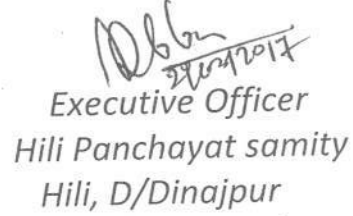 Executive Officer
Hili Panchayat samity
Hili, D/Dinajpur